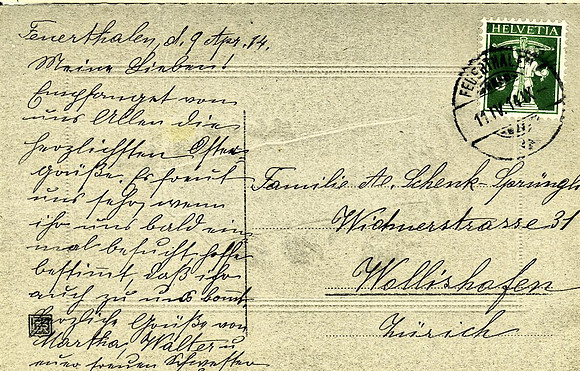 Feuerthalen, d. 9 Apr. 14.
Meine Lieben!
Empfanget von
uns Allen die
herzlichsten Oster-
grüße. Es freut
uns sehr, wenn
ihr uns bald ein
mal besucht, hoffe
bestimt, daß ihr
auch zu uns komt
Herzliche Grüße von
Martha, Walter u
euer treuen Schwester
HELVETIA
FEUERTHALEN
11.IV.14
Familie A. Schenk-Sprüngli
Widnerstrasse 31
Wollishofen
Zürich